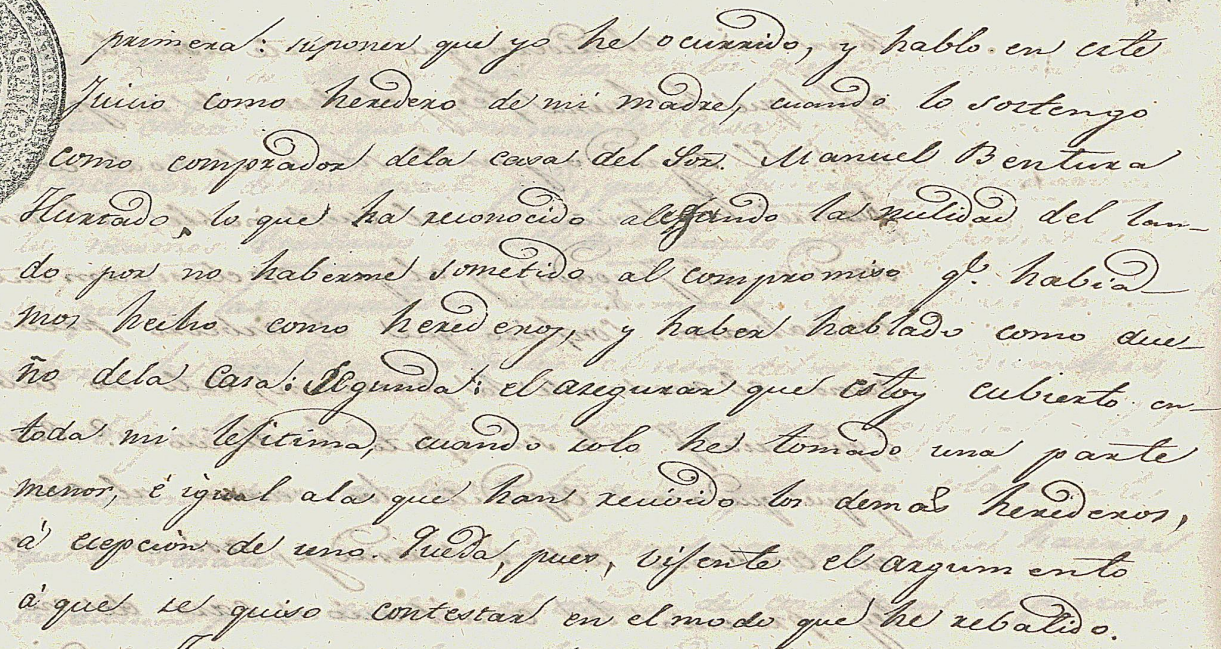 primera: suponer que yo he ocurrido, y hablo en este
Juicio como heredero de mi madre, cuando lo sostengo
como comprador dela casa del Sor. Manuel Bentura
Hurtado, lo que ha reconocido alegando la nulidad del lau-
do por no haberme sometido al compromiso qe. habia-
mos hecho como herederos, y haber hablado como due-
ño dela Casa: Segunda: el asegurar que estoy cubierto en-
toda mi lejitima, cuando solo he tomado una parte
menor, é igual ala que han recivido los demas herederos,
á ecepción de uno. Queda, pues, vijente el argumento
á que se quiso contestar en el modo que he rebatido.